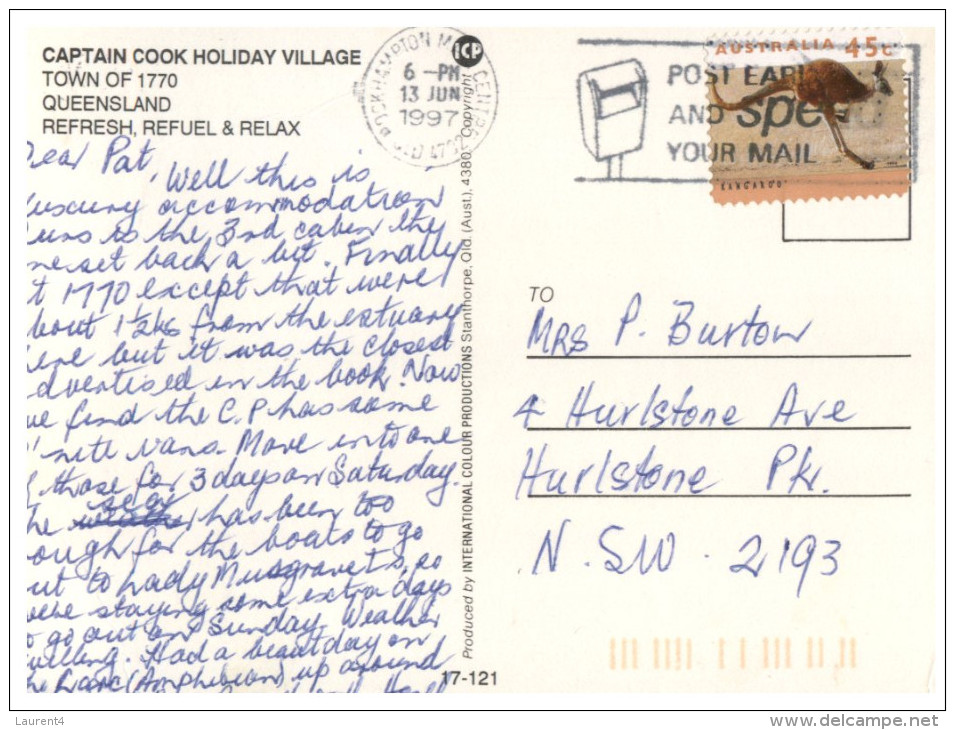 CAPTAIN COOK HOLIDAY VILLAGE
TOWN OF 1770
QUEENSLAND
REFRESH, REFUEL & RELAX
ear Pat,
Well this is
uxury accommodation
urs is the 3rd cabin the
ne set back a bit. Finally
t 1770 except that were
bout 1½ks from the estuary
ere but it was the closest
dvertised in the book. Now
we find the C.P has some
nite vans. Move into one
f those for 3 days on Saturday.
he sea has been too
ough for the boats to go
ut to Lady Musgrave Is, so
were staying some extra days
o go out on Sunday. Weather
Had a beaut day on
he Larc (Amphibian) up around
Produced by INTERNATIONAL COLOUR PRODUCTIONS Stanthorpe, Qld. (Aust.), 4380. Copyright
ICP
ROCKHAMPTON M CENTRE
6 -PM
13 JUN
1997
QLD 4702
POST EARLY
AND speed
YOUR MAIL
AUSTRALIA 45c
KANGAROO
TO
Mrs P. Burton
4 Hurlstone Ave
Hurlstone Pk.
N.SW. 2193
17-121
Laurent4
www.delcampe.net